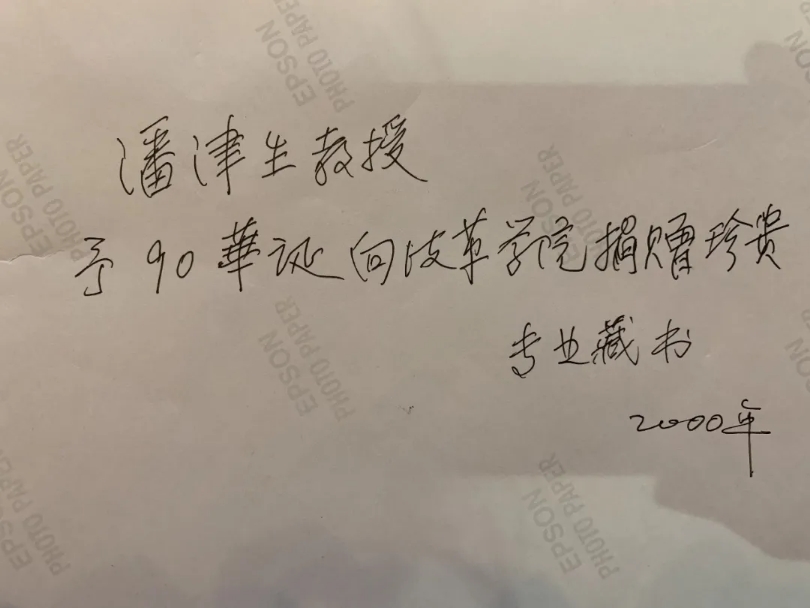 潘津生教授
予90華诞向皮革学院捐赠珍贵
专业藏书
2000年
EPSON
PHOTO PAPER
EPSON
PHOTO PAPER
EPSON
PHOTO PAPER
EPSON
PHOTO PAPER
EPSON
PHOTO PAPER
EPSON
PHOTO PAPER